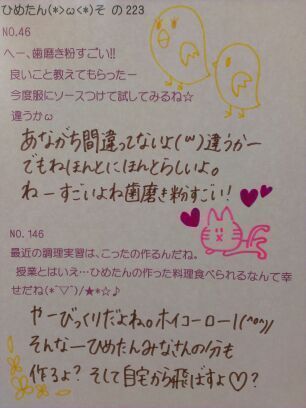 ひめたん(*>ω<*)そ の223
NO.46
へー、歯磨き粉すごい!!
良いこと教えてもらったー
今度服にソースつけて試してみるね☆
違うかω
あながち間違ってないよ(w)違うかー
でもねほんとにほんとらしいよ。
ねーすごいよね歯磨き粉すごい!
NO. 146
最近の調理実習は、こったの作るんだね。
授業とはいえ…ひめたんの作った料理食べられるなんて幸
せだね(*ˆ▽ˆ)/★*☆♪
やーびっくりだよね。ホイコーロー!(^o^)/
そんなーひめたんみなさんの分も
作るよ? そして自宅から飛ばすよ♡?